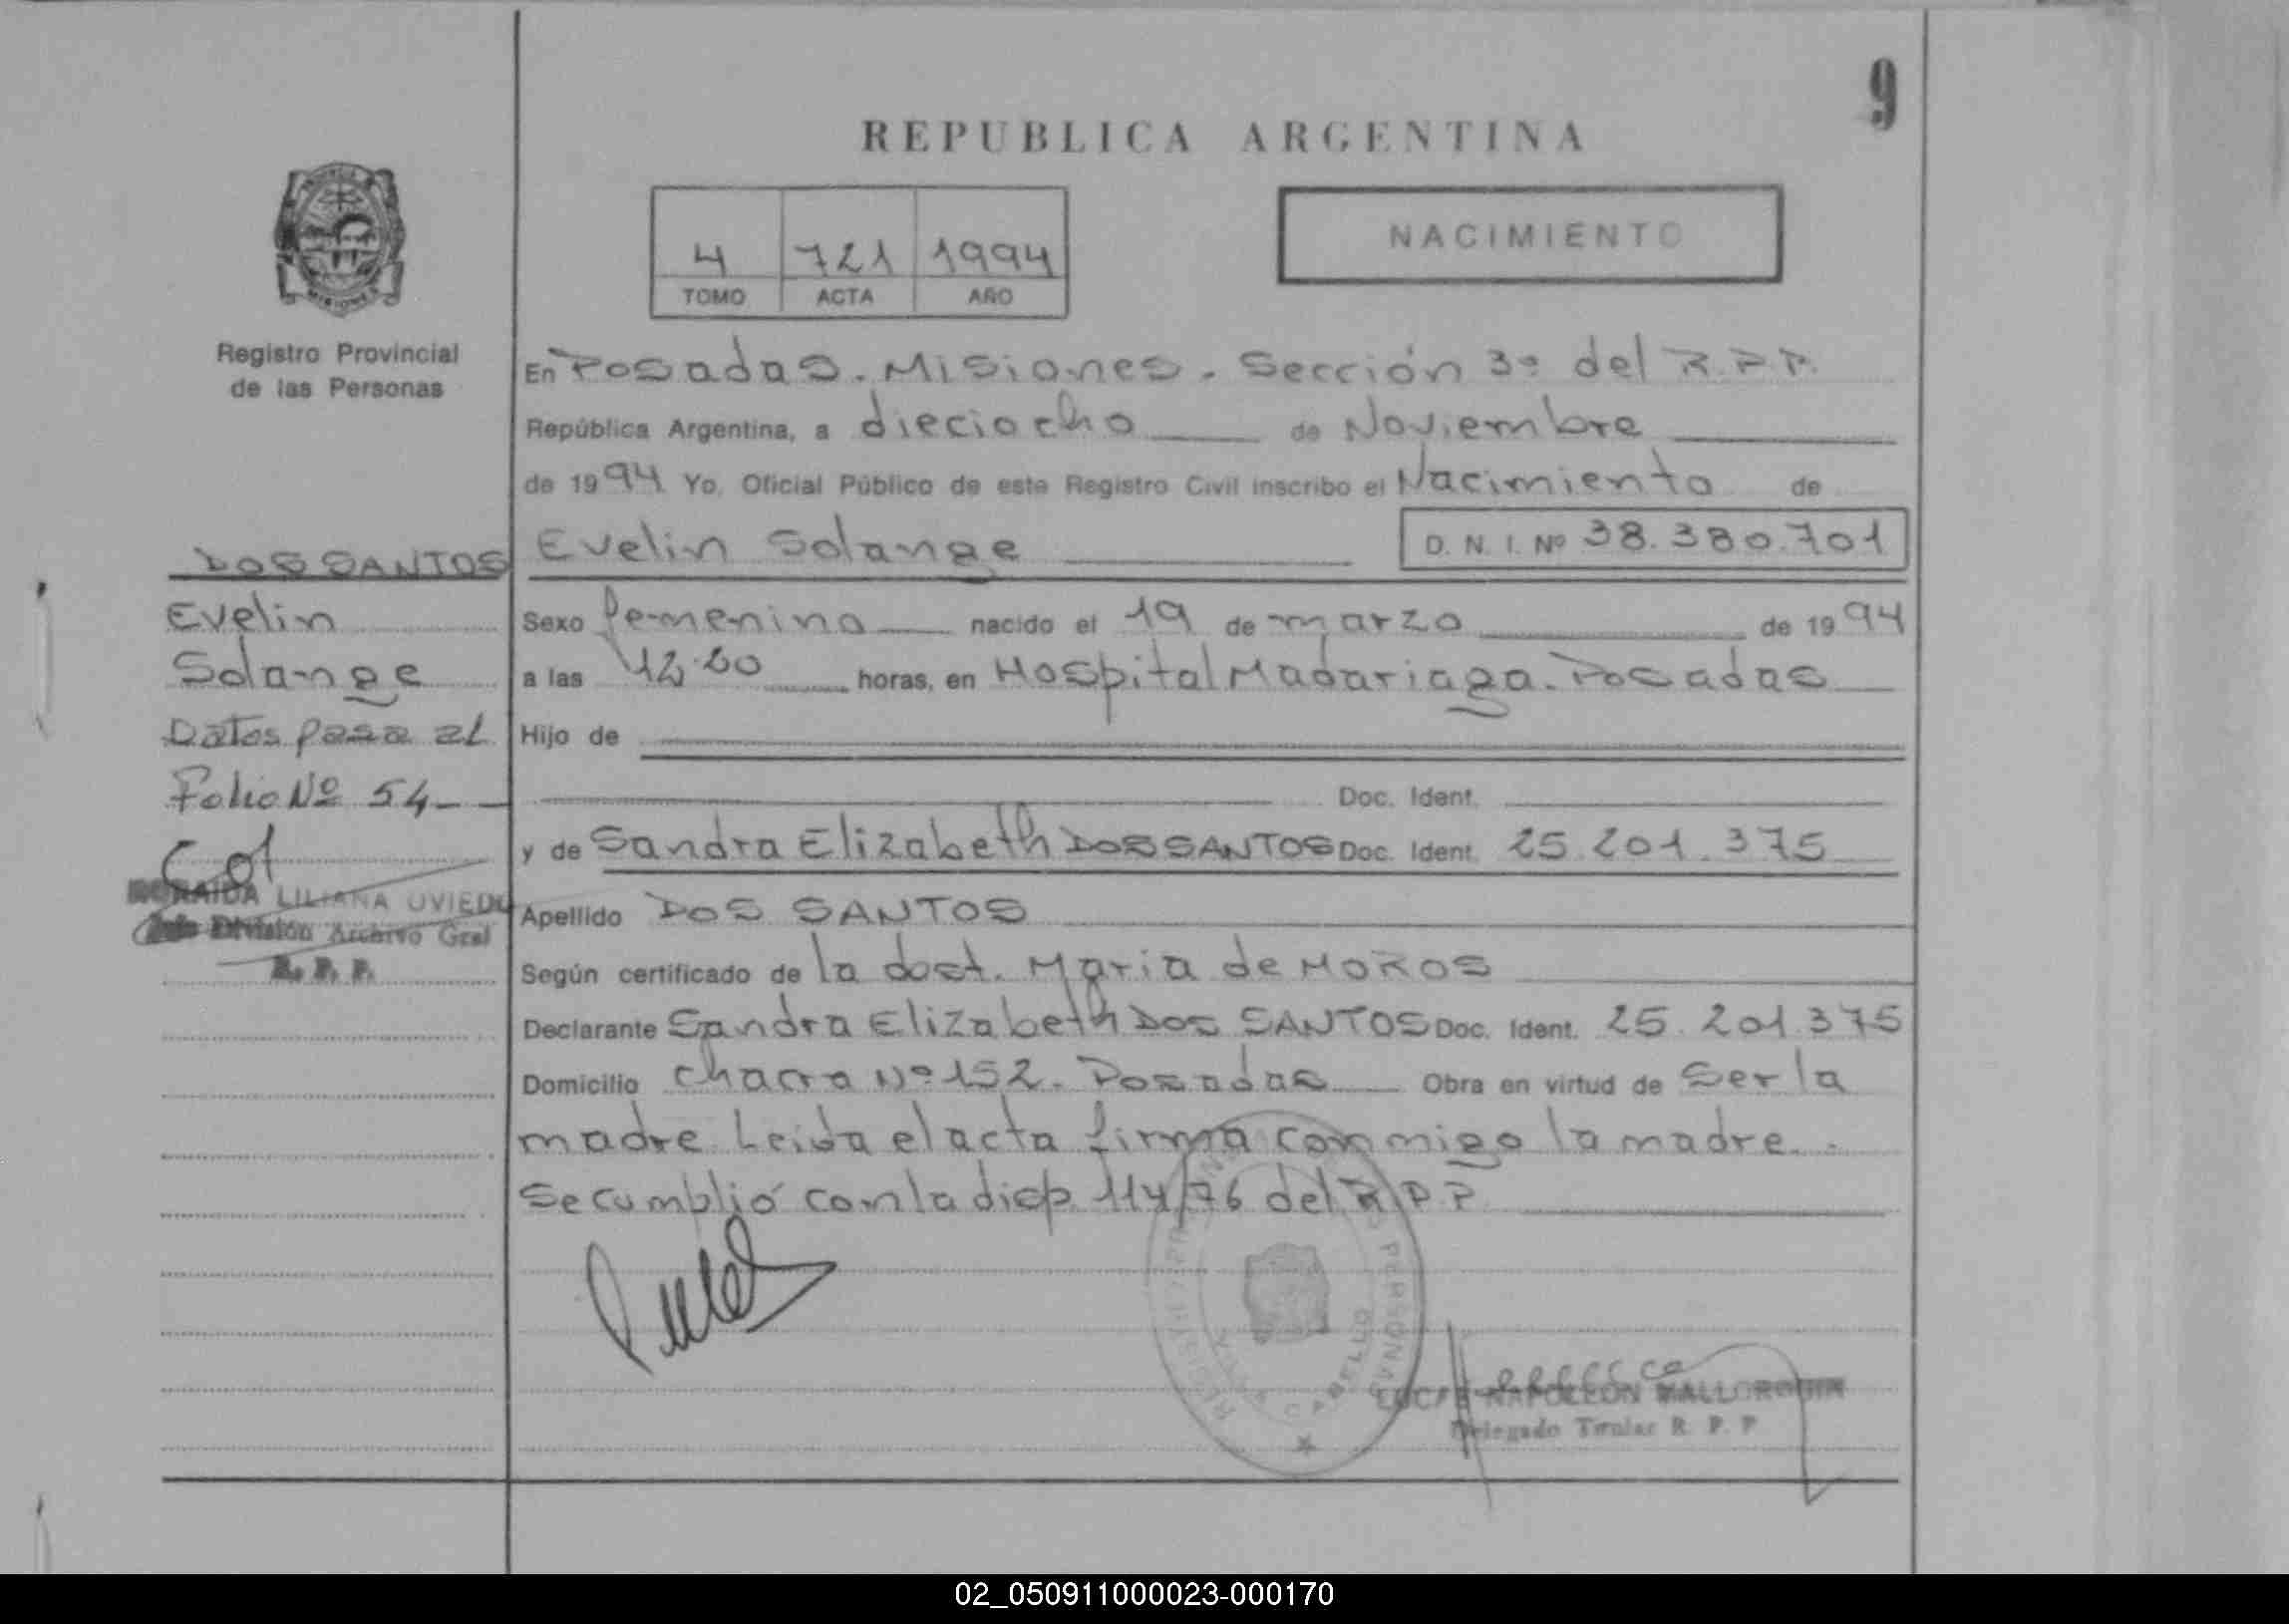 9
REPUBLICA ARGENTINA
4 721 1994
TOMO ACTA AÑO
NACIMIENTO
MISIONES
Registro Provincial
de las Personas
En Posadas. Misiones. Sección 3º del R.P.P.
República Argentina, a dieciocho de Noviembre
de 1994 Yo, Oficial Público de este Registro Civil inscribo el Nacimiento de
Evelin Solange D. N. I. Nº 38.380.701
Sexo femenino nacido el 19 de marzo de 1994
a las horas, en Hospital Madariaga. Posadas
Hijo de
Doc. Ident.
y de Sandra Elizabeth DOS SANTOS Doc. Ident. 25.201.375
Apellido DOS SANTOS
Según certificado de la doct. Maria de MOROS
Declarante Sandra Elizabeth DOS SANTOS Doc. Ident. 25.201.375
Domicilio Chacra Nº 152. Posadas Obra en virtud de Ser la
madre. Leida el acta firma conmigo la madre.
Se cumplió con la disp. 114/76 del R.P.P.
DOS SANTOS
Evelin
Solange
Datos pasa al
Folio Nº 54
LILIANA UVIEDO
División Archivo Gral
R. P. P.
NAPOLEON MALLORQUIN
Delegado Titular R. P. P.
02_050911000023-000170